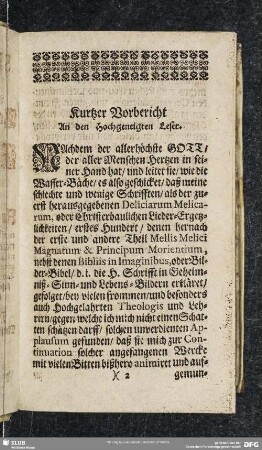 Kurtzer Vorbericht
An den Hochgeneigten Leser.
NAchdem der allerhöchste GOTT/
der aller Menschen Hertzen in sei-
ner Hand hat/ und leitet sie/ wie die
Wasser-Bäche/ es also geschicket/ daß meine
schlechte und wenige Schrifften/ als der zu-
erst herausgegebenen Deliciarum Melica-
rum, oder Christerbaulichen Lieder-Ergetz-
lichkeiten/ erstes Hundert/ denen hernach
der erste und andere Theil Mellis Melici
Magnatum & Principum Morientium,
nebst denen Bibliis in Imaginibus, oder Bil-
der-Bibel/ d. i. die H. Schrifft in Geheim-
niß-Sinn- und Lebens-Bildern erkläret/
gefolget/ bey vielen frommen/ und besonders
auch Hochgelahrten Theologis und Leh-
rern/ gegen welche ich mich nicht einen Schat-
ten schätzen darff/ solchen unverdienten Ap-
plausum gefunden/ daß sie mich zur Con-
tinuation solcher angefangenen Wercke
mit vielen Bitten bißhero animiret und auf-
)( 2 gemun-
SLUB
DFG